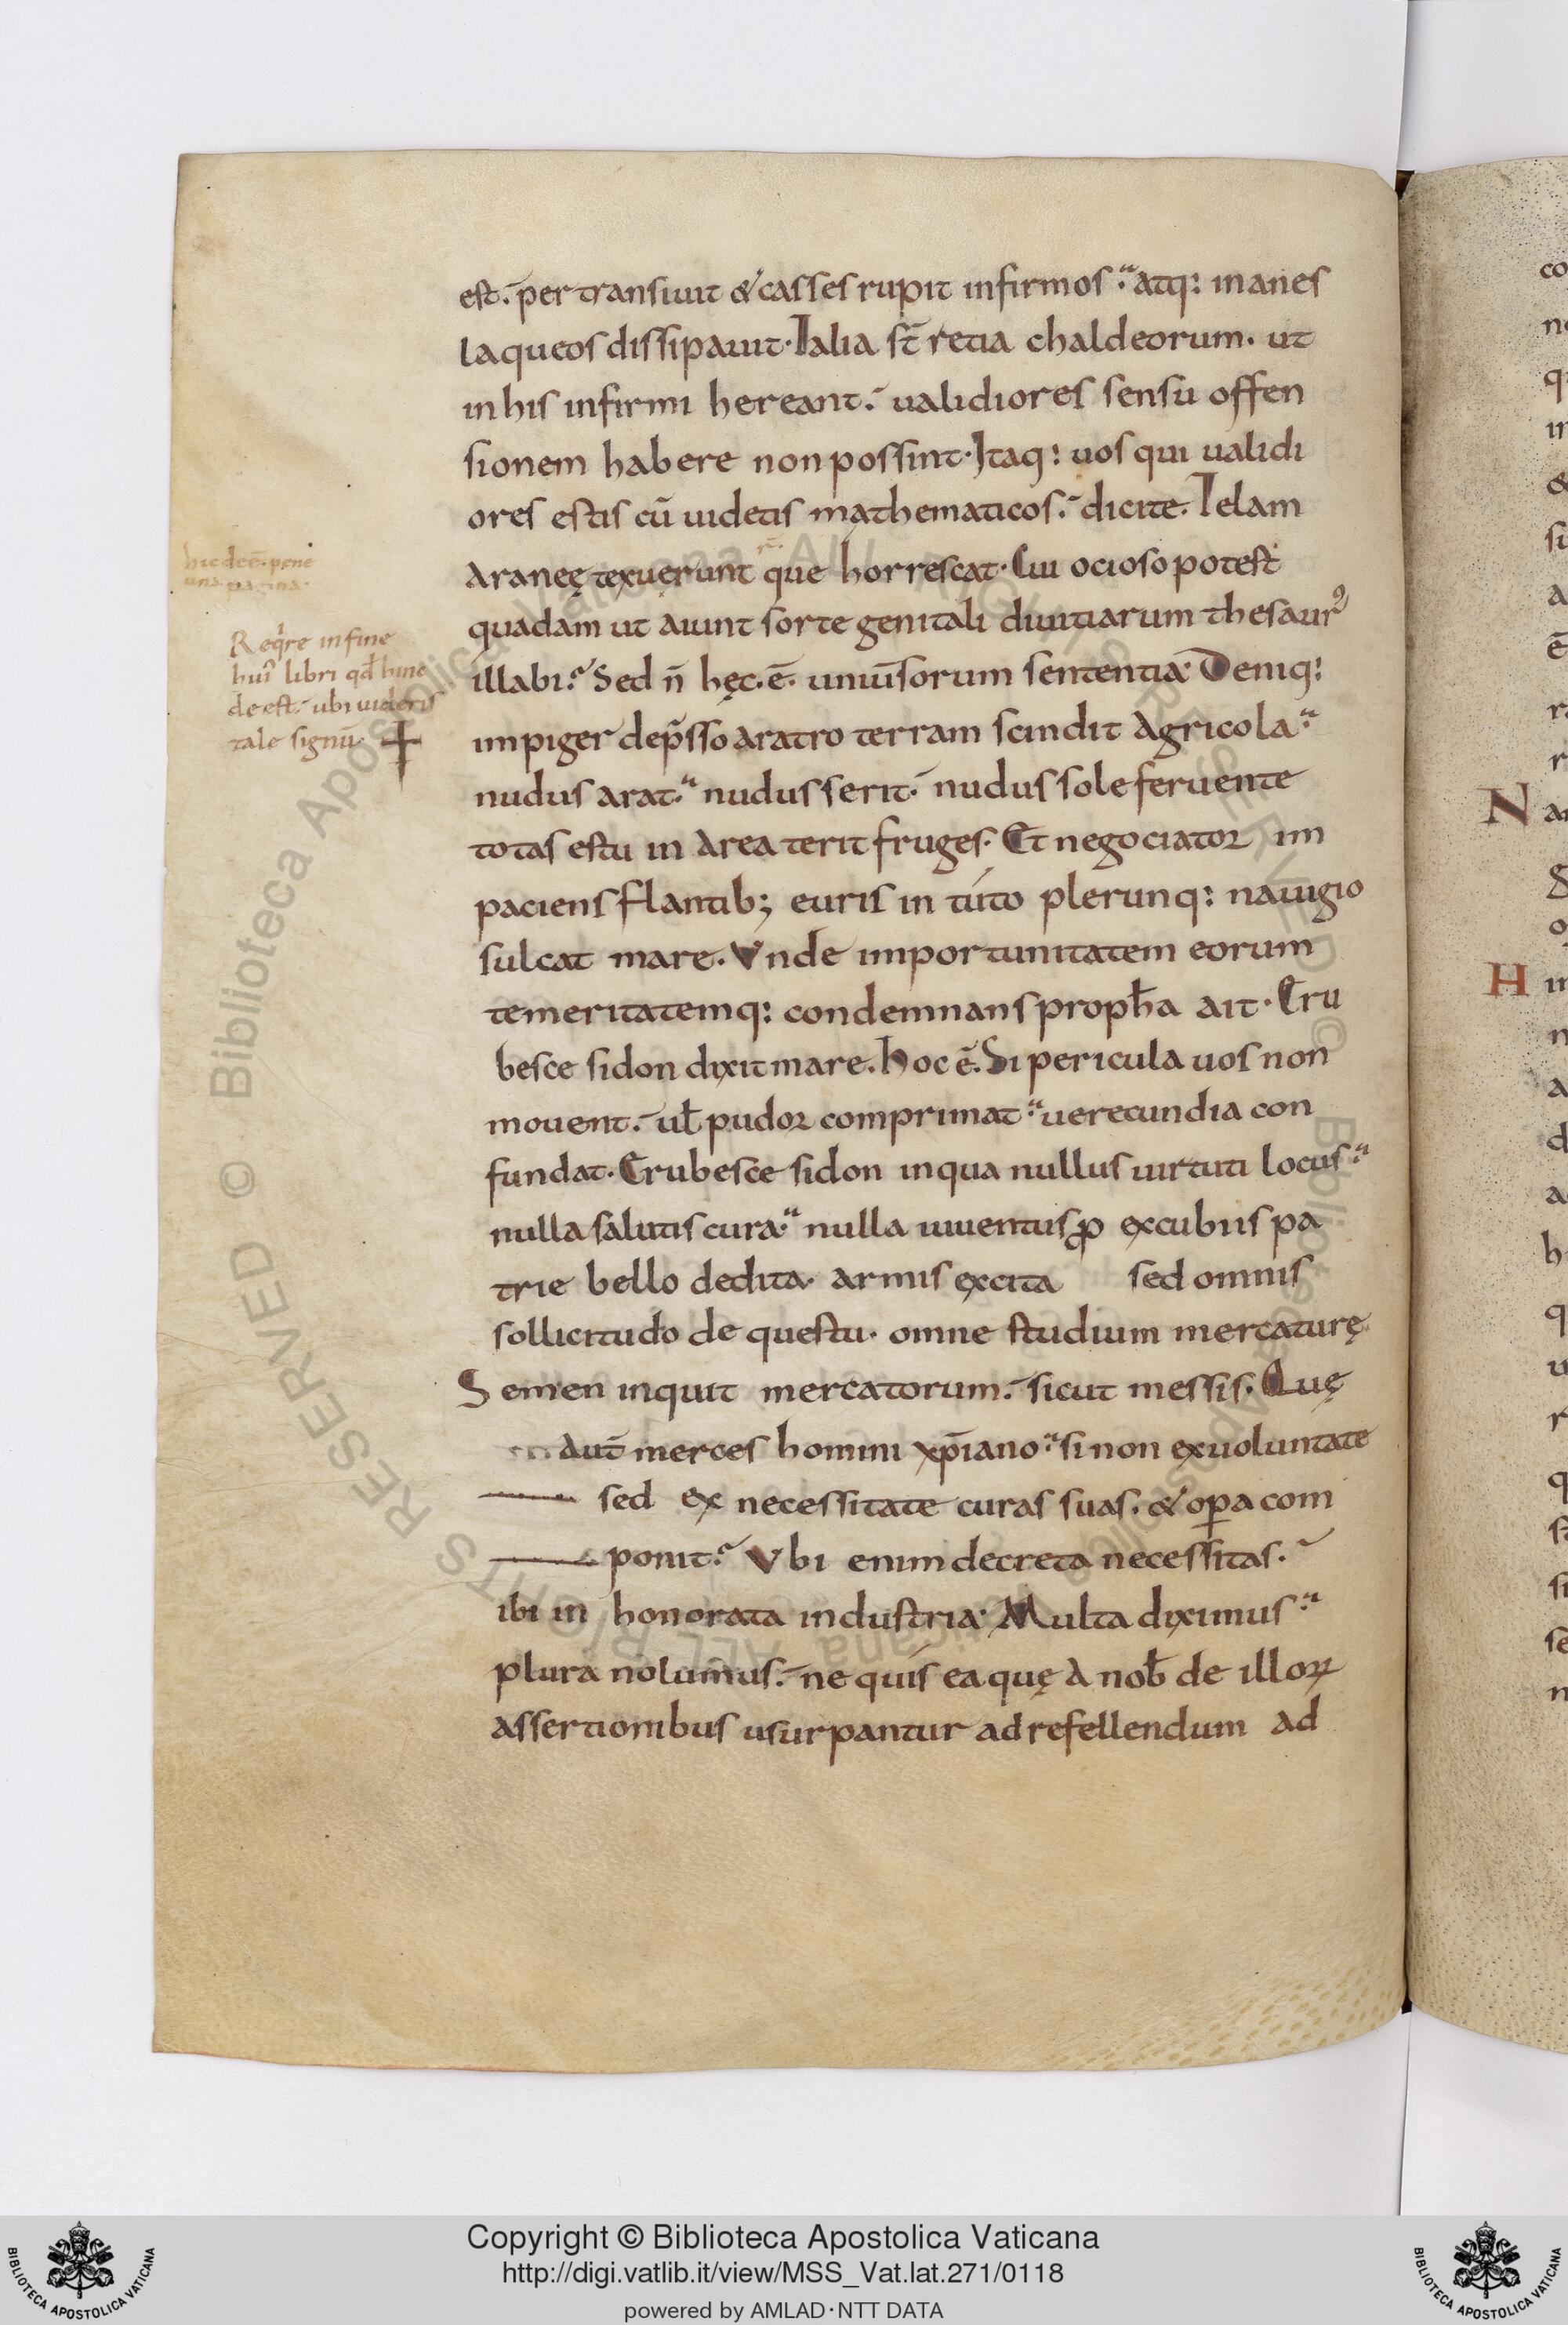 hic deē. pene
una pagina.
Reqͥre in fine
huiͥ libri qđ hinc
deest. ubi uideris
tale signū. ┼
est. pertransiuit & casses rupit infirmos. atq: inanes
laqueos dissipauit. Talia st̄ retia chaldeorum. ut
in his infirmi hereant. ualidiores sensu offen
sionem habere non possint. Itaq: uos qui ualidi
ores estis cū uidetis mathematicos. dicite. Telam
araneę texuerunt que horrescat. Cui ocioso potest
quadam ut aiunt sorte genitali diuitiarum thesaurꝰ
illabi? Sed n̄ hęc. ē. uniūsorum sententia. Deniq:
impiger dep̄sso aratro terram scindit agricola.
nudus arat. nudus serit. nudus sole feruente
totas estu in area terit fruges. Et negociator im
paciens flantib; euris in túto plerunq: nauigio
sulcat mare. Vnde importunitatem eorum
temeritatemq: condemnans propħa ait. Eru
besce sidon dixit mare. hoc ē. Si pericula uos non
mouent. uƚ pudor comprimat. uerecundia con
fundat. Erubesce sidon in qua nullus uirtuti locus.
nulla salutis cura. nulla iuuentus ꝓ excubiis pa
trie bello dedita. armis excita sed omnis
sollicitudo de questu. omne studium mercaturę.
Semen inquit mercatorum. sicut messis. Quę
aut̄ merces homini xp̄iano. si non ex uoluntate
sed ex necessitate curas suas. & oꝑa com
ponit? Vbi enim decreta necessitas.
ibi in honorata industria. Multa diximus.
plura nolumus. ne quis ea quę a nob̄ de illoꝝ
assertionibus usurpantur ad refellendum ad
co
no
q
in
&
si
a
ē
r
r
N a
S
o
H in
n
a
d
a
h
q
u
r
q
st
si
sē
n
Copyright © Biblioteca Apostolica Vaticana
http://digi.vatlib.it/view/MSS_Vat.lat.271/0118
powered by AMLAD·NTT DATA
BIBLIOTECA APOSTOLICA VATICANA
BIBLIOTECA APOSTOLICA VATICANA
© Biblioteca Apostolica Vaticana ALL RIGHTS RESERVED © Biblioteca Apostolica Vaticana ALL RIGHTS RESERVED